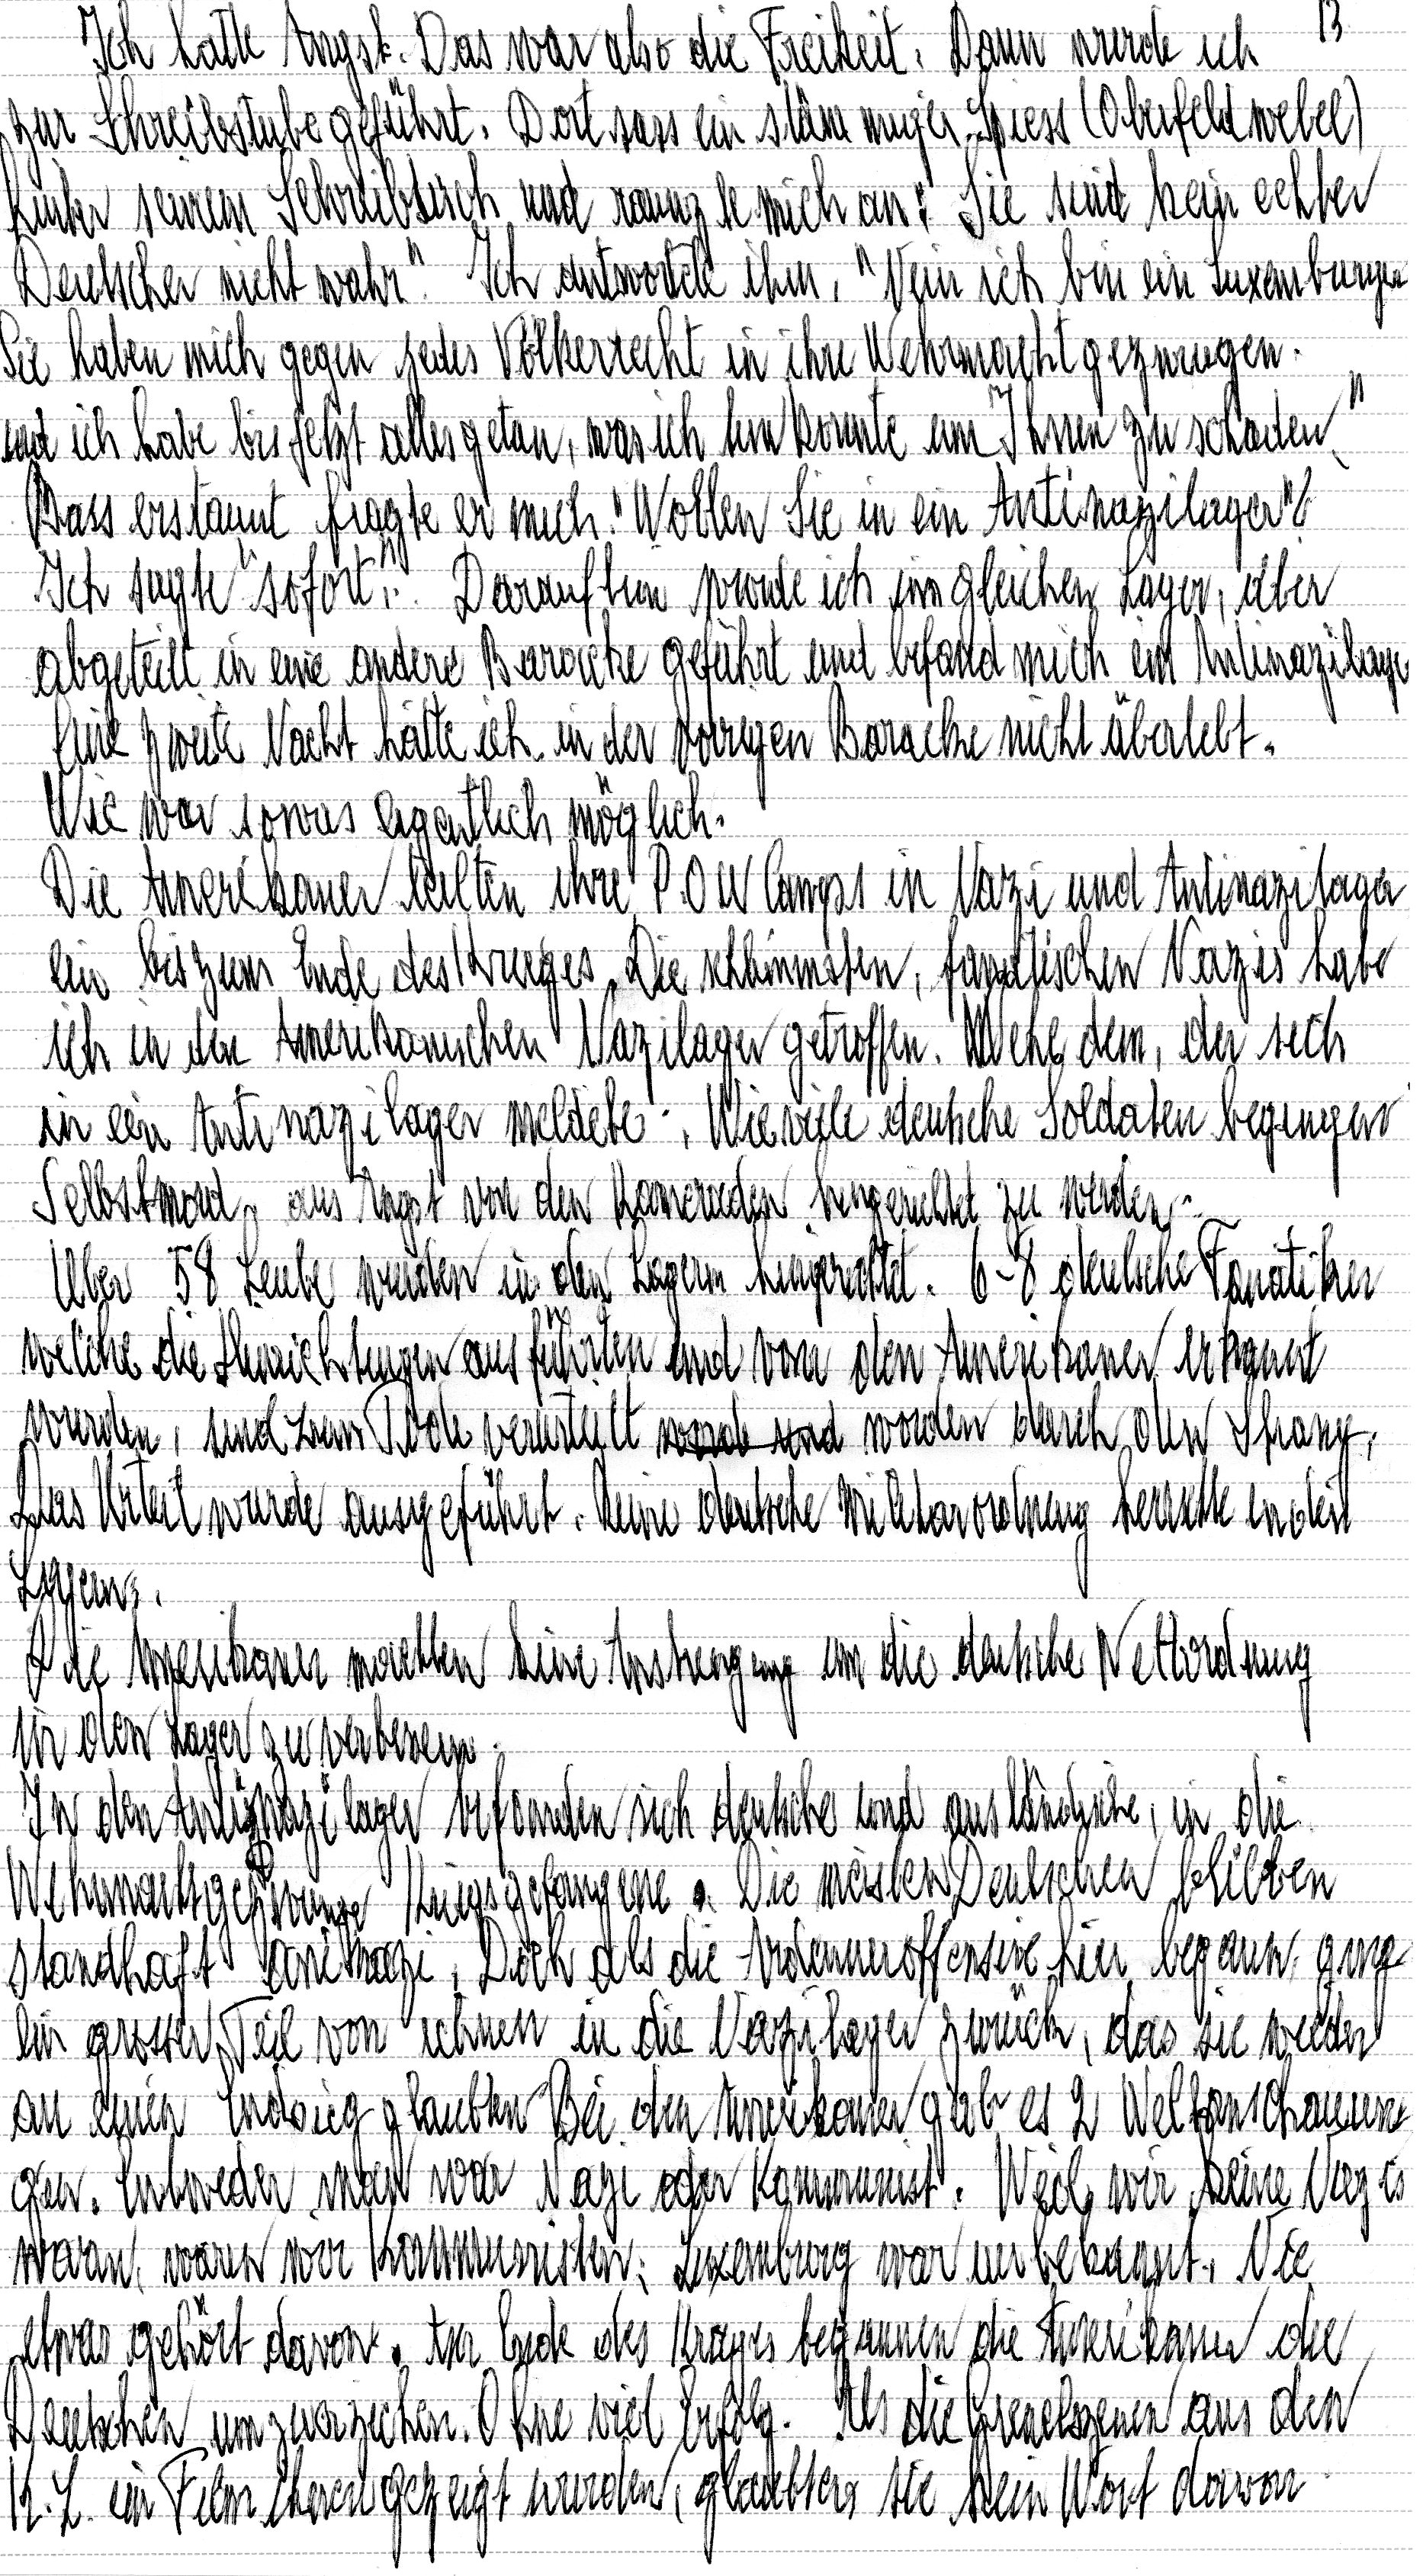 13
Ich hatte Angst. Das war also die Freiheit. Dann wurde ich
zur Schreibstube geführt. Dort sass ein stämmiger Spiess (Oberfeldwebel)
hinter seinem Schreibtisch und raunzte mich an: "Sie sind kein echter
Deutscher nicht wahr" Ich antwortete ihm, "Nein ich bin ein Luxemburger
Sie haben mich gegen jedes Völkerrecht in ihre Wehrmacht gezwungen.
und ich habe bis jetzt alles getan, was ich tun konnte um Ihnen zu schaden"
Bass erstaunt fragte er mich "Wollen Sie in ein Antinazilager"?
Ich sagte "sofort". Daraufhin wurde ich im gleichen Lager, aber
abgeteilt in eine andere Baracke geführt und befand mich im Antinazilager
Eine zweite Nacht hätte ich in der vorigen Baracke nicht überlebt.
Wie war sowas eigentlich möglich.
Die Amerikaner teilten ihre P.O.W Camps in Nazi und Antinazilager
ein bis zum Ende des Krieges. Die schlimmsten, fanatischen Nazis habe
ich in den Amerikanischen Nazilager getroffen. Wehe dem, der sich
in ein Antinazilager meldete. Wieviele deutsche Soldaten begingen
Selbstmord, aus Angst von den Kameraden hingerichtet zu werden.
Über 58 Leute wurden in den Lagern hingerichtet. 6-8 deutsche Fanatiker
welche die Hinrichtungen ausführten und von den Amerikaner erkannt
wurden, sind zum Tode verurteilt worden durch den Strang.
Das Urteil wurde ausgeführt. Reine deutsche Militärordnung herrschte in den
Lagern.
Die Amerikaner machten keine Anstrengung um die deutsche Weltordnung
in den Lager zu verbessern.
In den Antinazilager befanden sich deutsche und ausländische, in die
Wehrmacht gezwungene Kriegsgefangene. Die meisten Deutschen blieben
standhaft antinazi. Doch als die Ardennenoffensive hier begann, ging
ein grosser Teil von ihnen in die Nazilager zurück, das sie wieder
an einen Endsieg glaubten Bei den Amerikaner gab es 2 Weltanschauun
gen. Entweder man war Nazi oder Kommunist. Weil wir keine Nazis
waren, waren wir Kommunisten. Luxemburg war unbekannt. Nie
etwas gehört davon. Am Ende des Krieges begannen die Amerikaner die
Deutschen umzuerziehen. Ohne viel Erfolg. Als die Greuelszenen aus den
K.Z. im Film ihnen gezeigt wurden, glaubten sie kein Wort davon